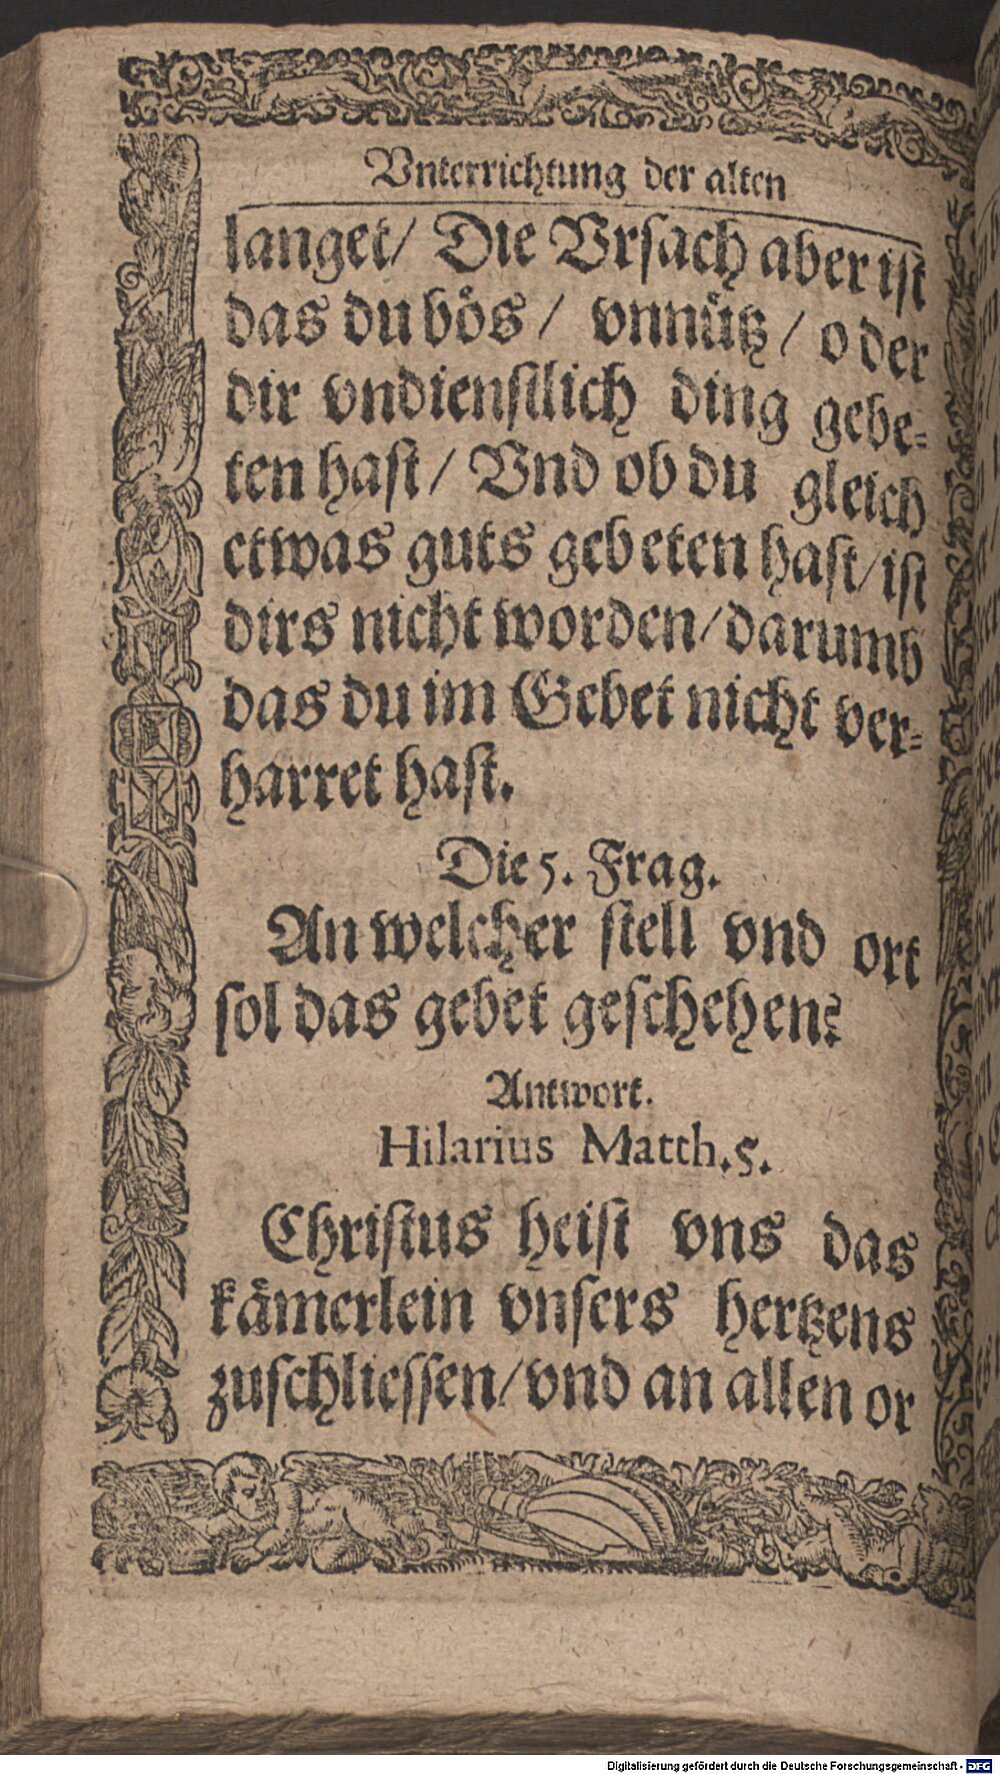 Vnterrichtung der alten
langet/ Die Vrsach aber ist
das du bös/ vnnütz/ oder
dir vndienstlich ding gebe-
ten hast/ Vnd ob du gleich
etwas guts gebeten hast/ ist
dirs nicht worden/ darumb
das du im Gebet nicht ver-
harret hast.
Die 5. Frag.
An welcher stell vnd ort
sol das gebet geschehen?
Antwort.
Hilarius Matth. 5.
Christus heist vns das
kämerlein vnsers hertzens
zuschliessen/ vnd an allen or
Digitalisierung gefördert durch die Deutsche Forschungsgemeinschaft - DFG